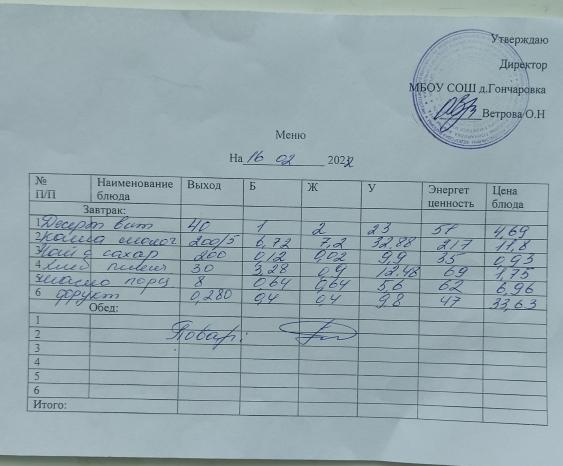 Утверждаю
Директор
МБОУ СОШ д.Гончаровка
Ветрова О.Н
Меню
На 16 02 2022
№ П/П Наименование блюда Выход Б Ж У Энергет ценность Цена блюда
Завтрак:
1 Десерт вит 40 1 2 23 58 4,69
2 Каша молоч 200/5 6,72 7,2 32,88 217 11,8
Чай с сахар 200 0,12 0,02 9,9 35 0,93
4 Хлеб пшенич 30 3,28 0,9 12,48 69 1,75
масло порц 8 0,64 0,64 5,6 62 6,96
6 фрукт 0,280 0,4 0,4 9,8 47 33,63
Обед:
1
2 Повар:
3
4
5
6
Итого: